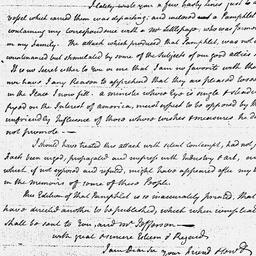 I lately wrote you a few hasty lines just to a
vessel which carried them was departing; and inclosed a Pamphlet
containing my Correspondence with a Mr Littlepage, who was former
in my family. The attack which produced that Pamphlet, was not
countenanced but stimulated by some of the Subjects of our good
It is no Secret either to You or me that I am no favorite with those
nor have I any Reason to apprehend that they are pleased to see
in the State I now fill. a minister whose Eye is single &
fixed on the Interest of america, must expect to be opposed by the
unfriendly Influence of those whose wishes & measures he do
not promote —
I should have treated this attack with silent Contempt, had not
Facts been urged, propagated and impress with Industry & art,
which if not exposed and refuted, might have appeared after my
in the Memoirs of some of these People.
This Edition of that Pamphlet is so inaccurately printed, that
have directed another to be published, which when compleated
shall be sent to You, and Mr Jefferson —
with great & sincere Esteem & Regard
I am Dear Sir your friend & Servt